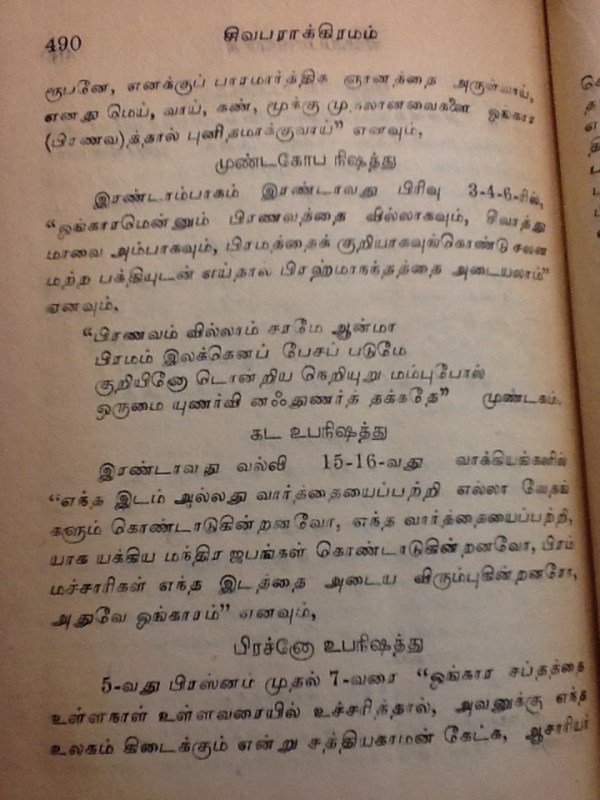 490
சிவபராக்கிரமம்
ரூபனே, எனக்குப் பாரமார்த்திக ஞானத்தை அருள்வாய்,
எனது மெய், வாய், கண், மூக்கு முதலானவைகளை ஓங்கார
(பிரணவ)த்தால் புனிதமாக்குவாய்” எனவும்,
முண்டகோப நிஷத்து
இரண்டாம்பாகம் இரண்டாவது பிரிவு 3-4-6-ரில்,
“ஓங்காரமென்னும் பிரணவத்தை வில்லாகவும், சிவாத்து
மாவை அம்பாகவும், பிரமத்தைக் குறியாகவுங்கொண்டு சலன
மற்ற பக்தியுடன் எய்தால் பிரஹ்மாநந்தத்தை அடையலாம்”
எனவும்.
“பிரணவம் வில்லாம் சரமே ஆன்மா
பிரமம் இலக்கெனப் பேசப் படுமே
குறியினோ டொன்றிய நெறியுறு மம்புபோல்
ஒருமை யுணர்வி னஃதுணர்த் தக்கதே” முண்டகம்.
கட உபநிஷத்து
இரண்டாவது வல்லி 15-16-வது வாக்கியங்களில்
“எந்த இடம் அல்லது வார்த்தையைப்பற்றி எல்லா வேதங்
களும் கொண்டாடுகின்றனவோ, எந்த வார்த்தையைப்பற்றி,
யாக யக்கிய மந்திர ஜபங்கள் கொண்டாடுகின்றனவோ, பிரம்
மச்சாரிகள் எந்த இடத்தை அடைய விரும்புகின்றனரோ,
அதுவே ஓங்காரம்” எனவும்,
பிரச்னோ உபநிஷத்து
5-வது பிரஸ்னம் முதல் 7-வரை “ஓங்கார சப்தத்தை
உள்ளநாள் உள்ளவரையில் உச்சரித்தால், அவனுக்கு எந்த
உலகம் கிடைக்கும் என்று சத்தியகாமன் கேட்க, ஆசாரியர்